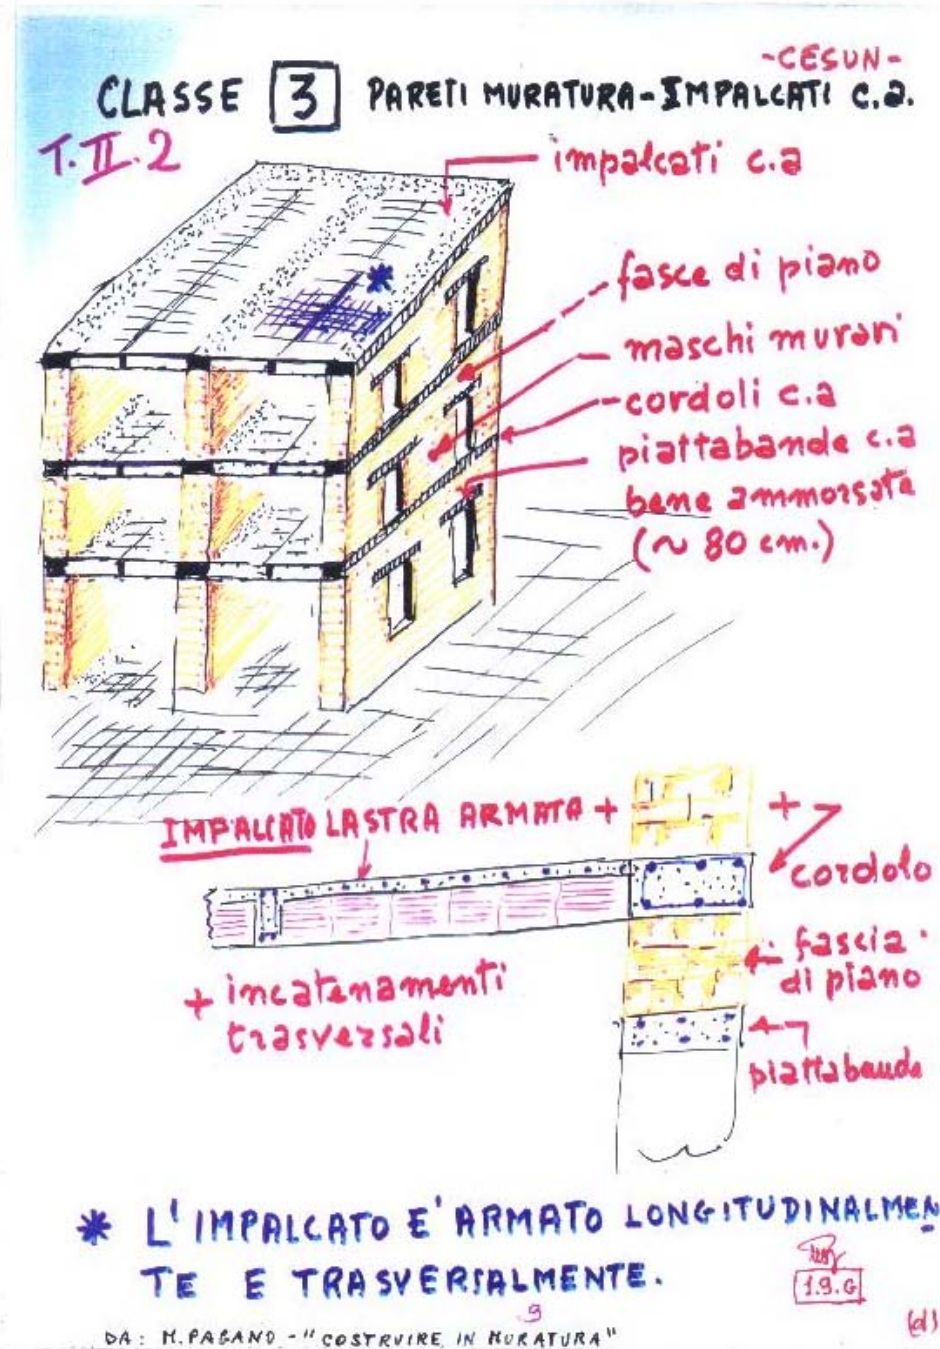 -CESUN-
CLASSE 3 PARETI MURATURA-IMPALCATI c.a.
T.II.2
impalcati c.a
fasce di piano
maschi murari
cordoli c.a
piattabande c.a
bene ammorsate
(~ 80 cm.)
IMPALCATO LASTRA ARMATA +
+
cordolo
fascia
di piano
+ incatenamenti
trasversali
piattabanda
* L'IMPALCATO E' ARMATO LONGITUDINALMEN
TE E TRASVERSALMENTE.
1.9.G
9
(d)
DA: M. PAGANO - "COSTRUIRE IN MURATURA"